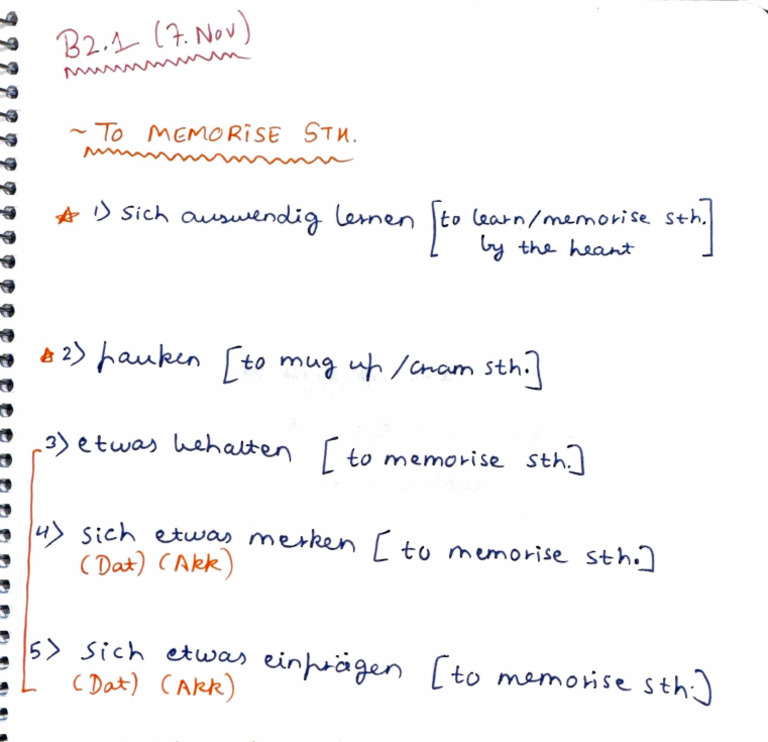 B2.1 (7. Nov)
~ TO MEMORISE STH.
1) sich auswendig lernen [to learn/memorise sth.
by the heart]
2) pauken [to mug up/cram sth.]
3) etwas behalten [to memorise sth.]
4) sich etwas merken [to memorise sth.]
(Dat) (Akk)
5) sich etwas einprägen [to memorise sth.]
(Dat) (Akk)